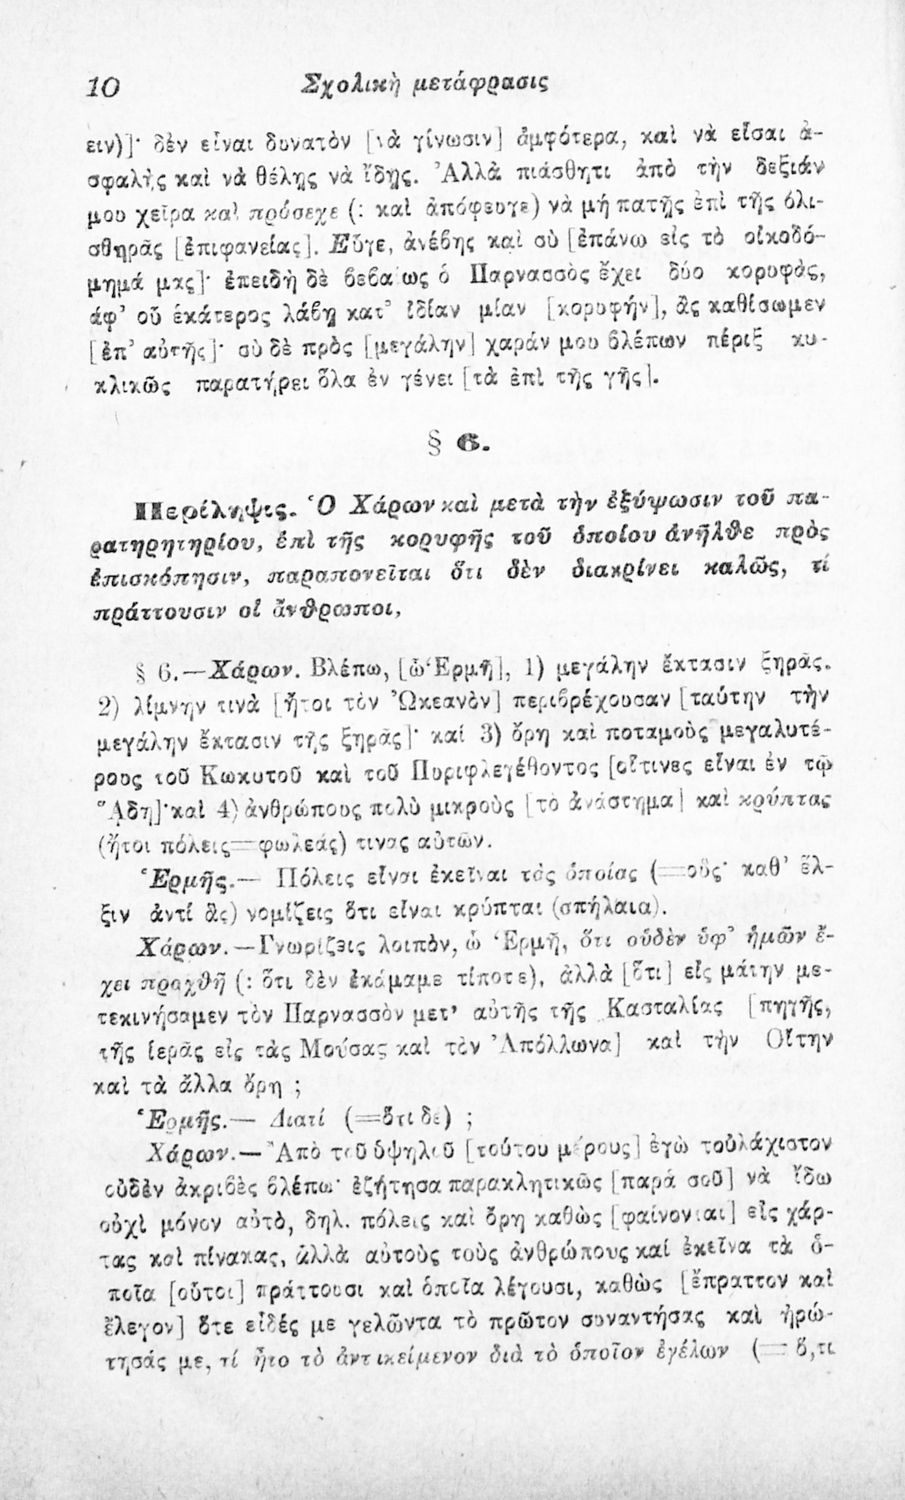 10 Σχολικὴ μετάφρασις
ειν)]· δὲν εἶναι δυνατὸν [νὰ γίνωσιν] ἀμφότερα, καὶ νὰ εἶσαι ἀ-
σφαλὴς καὶ νὰ θέλῃς νὰ ἴδῃς. Ἀλλὰ πιάσθητι ἀπὸ τὴν δεξιάν
μου χεῖρα καὶ πρόσεχε (: καὶ ἀπόφευγε) νὰ μή πατῇς ἐπὶ τῆς ὀλι-
σθηρᾶς [ἐπιφανείας]. Εὖγε, ἀνέβης καὶ σὺ [ἐπάνω εἰς τὸ οἰκοδό-
μημά μας]· ἐπειδὴ δὲ βεβαίως ὁ Παρνασσὸς ἔχει δύο κορυφάς,
ἀφ’ οὗ ἑκάτερος λάβῃ κατ’ ἰδίαν μίαν [κορυφήν], ἂς καθίσωμεν
[ἐπ’ αὐτῆς]· σὺ δὲ πρὸς [μεγάλην] χαράν μου βλέπων πέριξ κυ-
κλικῶς παρατήρει ὅλα ἐν γένει [τὰ ἐπὶ τῆς γῆς].
§ 6.
Περίληψις. Ὁ Χάρων καὶ μετὰ τὴν ἐξύψωσιν τοῦ πα-
ρατηρητηρίου, ἐπὶ τῆς κορυφῆς τοῦ ὁποίου ἀνῆλθε πρὸς
ἐπισκόπησιν, παραπονεῖται ὅτι δὲν διακρίνει καλῶς, τί
πράττουσιν οἱ ἄνθρωποι,
§ 6.—Χάρων. Βλέπω, [ὦ Ἑρμῆ], 1) μεγάλην ἔκτασιν ξηρᾶς.
2) λίμνην τινὰ [ἤτοι τὸν Ὠκεανὸν] περιβρέχουσαν [ταύτην τὴν
μεγάλην ἔκτασιν τῆς ξηρᾶς]· καί 3) ὄρη καὶ ποταμοὺς μεγαλυτέ-
ρους τοῦ Κωκυτοῦ καὶ τοῦ Πυριφλεγέθοντος [οἵτινες εἶναι ἐν τῷ
Ἅδῃ]·καὶ 4) ἀνθρώπους πολὺ μικροὺς [τὸ ἀνάστημα] καὶ κρύπτας
(ἤτοι πόλεις=φωλεάς) τινας αὐτῶν.
Ἑρμῆς.— Πόλεις εἶναι ἐκεῖναι τὰς ὁποίας (=οὓς· καθ’ ἕλ-
ξιν ἀντί ἃς) νομίζεις ὅτι εἶναι κρύπται (σπήλαια).
Χάρων.—Γνωρίζεις λοιπὸν, ὦ Ἑρμῆ, ὅτι οὐδὲν ὑφ’ ἡμῶν ἔ-
χει πραχθῆ (: ὅτι δὲν ἐκάμαμε τίποτε), ἀλλὰ [ὅτι] εἰς μάτην με-
τεκινήσαμεν τὸν Παρνασσὸν μετ’ αὐτῆς τῆς Κασταλίας [πηγῆς,
τῆς ἱερᾶς εἰς τὰς Μούσας καὶ τὸν Ἀπόλλωνα] καὶ τὴν Οἴτην
καὶ τὰ ἄλλα ὄρη ;
Ἑρμῆς.— Διατί (=ὅτι δὲ) ;
Χάρων.—Ἀπὸ τοῦ ὑψηλοῦ [τούτου μέρους] ἐγὼ τοὐλάχιστον
οὐδὲν ἀκριβὲς βλέπω· ἐζήτησα παρακλητικῶς [παρά σοῦ] νὰ ἴδω
οὐχὶ μόνον αὐτὸ, δηλ. πόλεις καὶ ὄρη καθὼς [φαίνονται] εἰς χάρ-
τας καὶ πίνακας, ἀλλὰ αὐτοὺς τοὺς ἀνθρώπους καί ἐκεῖνα τὰ ὁ-
ποῖα [οὗτοι] πράττουσι καὶ ὁποῖα λέγουσι, καθὼς [ἔπραττον καὶ
ἔλεγον] ὅτε εἶδές με γελῶντα τὸ πρῶτον συναντήσας καὶ ἠρώ-
τησάς με, τί ἦτο τὸ ἀντικείμενον διὰ τὸ ὁποῖον ἐγέλων (= ὅ,τι